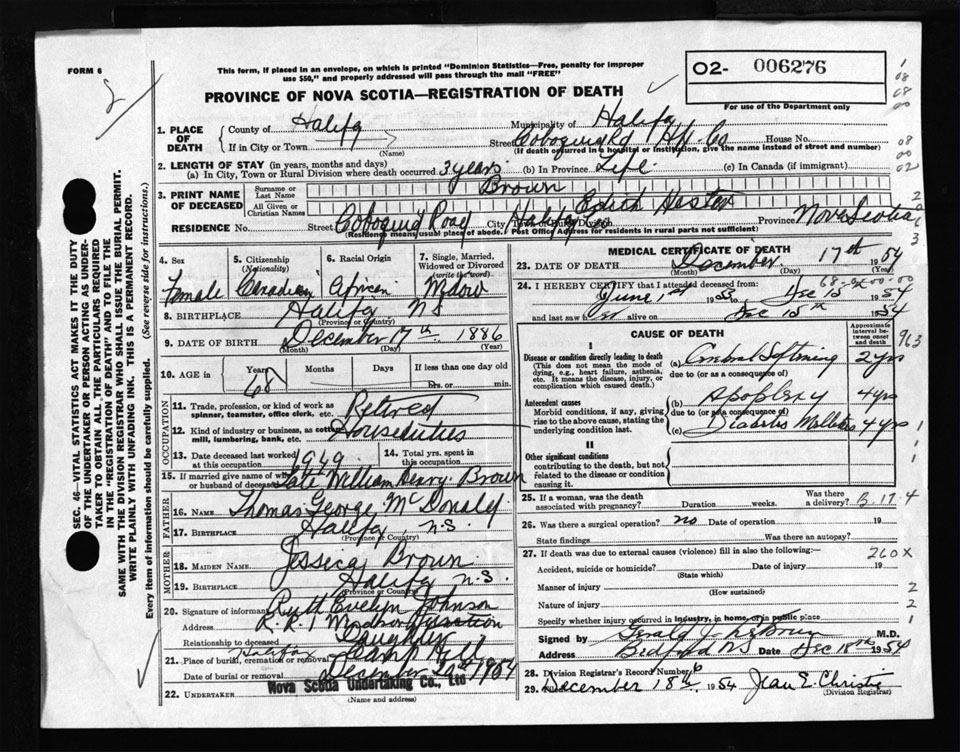 FORM 6
This form, if placed in an envelope, on which is printed "Dominion Statistics—Free, penalty for improper
use $50," and properly addressed will pass through the mail "FREE"
PROVINCE OF NOVA SCOTIA—REGISTRATION OF DEATH
O2- 006276
For use of the Department only
1. PLACE OF DEATH
County of Halifax Municipality of Halifax
If in City or Town (Name) Street Cobequid Rd Hfx Co House No.
(If death occurred in a hospital or institution, give the name instead of street and number)
2. LENGTH OF STAY (in years, months and days)
(a) In City, Town or Rural Division where death occurred 3 years (b) In Province Life (c) In Canada (if immigrant)
3. PRINT NAME OF DECEASED
Surname or Last Name Brown
All Given or Christian Names Edith Hester
RESIDENCE No. Street Cobequid Road City Town Halifax Co Province Nova Scotia
(Residence means usual place of abode. Post Office Address for residents in rural parts not sufficient)
4. Sex Female
5. Citizenship (Nationality) Canadian
6. Racial Origin African
7. Single, Married, Widowed or Divorced (write the word) Widow
8. BIRTHPLACE Halifax NS
(Province or Country)
9. DATE OF BIRTH December 17th 1886
(Month) (Day) (Year)
10. AGE in Years 68 Months Days If less than one day
hrs. or min.
OCCUPATION
11. Trade, profession, or kind of work as
spinner, teamster, office clerk, etc. Retired
12. Kind of industry or business, as cotton
mill, lumbering, bank, etc. Houseduties
13. Date deceased last worked at this occupation 1949
14. Total yrs. spent in this occupation
15. If married give name of wife or husband of deceased Late William Henry Brown
FATHER
16. Name Thomas George McDonald
17. Birthplace Halifax, N.S.
(Province or Country)
MOTHER
18. Maiden Name Jessica Brown
19. Birthplace Halifax N.S.
(Province or Country)
20. Signature of informant Ruth Evelyn Johnson
Address R.R.1 Windsor Junction
Relationship to deceased Daughter
21. Place of burial, cremation or removal Halifax Camp Hill
Date of burial or removal December 20th 1954
22. UNDERTAKER Nova Scotia Undertaking Co., Ltd
MEDICAL CERTIFICATE OF DEATH
23. DATE OF DEATH December 17th 1954
(Month) (Day) (Year)
24. I HEREBY CERTIFY that I attended deceased from:
June 1st 1953 to Dec 15 1954
and last saw h er alive on Dec 15th 1954
CAUSE OF DEATH
Approximate interval between onset and death
I
Disease or condition directly leading to death
(This does not mean the mode of dying, e.g., heart failure, asthenia, etc. It means the disease, injury, or complication which caused death.)
(a) Cerebral Softening 2 yrs
due to (or as a consequence of)
Antecedent causes
Morbid conditions, if any, giving rise to the above cause, stating the underlying condition last.
(b) Apoplexy 4 yrs
due to (or as a consequence of)
(c) Diabetes Mellitus 4 yrs
II
Other significant conditions
contributing to the death, but not related to the disease or condition causing it.
25. If a woman, was the death associated with pregnancy? Duration weeks Was there a delivery?
B.17.4
26. Was there a surgical operation? no Date of operation 19
State findings Was there an autopsy?
27. If death was due to external causes (violence) fill in also the following:— 260X
Accident, suicide or homicide? (State which) Date of injury 19
Manner of injury (How sustained)
Nature of injury
Specify whether injury occurred in industry, in home, or in public place
Signed by Gerald J. M.D.
Address Bedford NS Date Dec 18th 1954
28. Division Registrar's Record Number 6
29. Filed December 18th 1954 Jean E. Christie
(Division Registrar)
SEC. 46—VITAL STATISTICS ACT MAKES IT THE DUTY
OF THE UNDERTAKER OR PERSON ACTING AS UNDER-
TAKER TO OBTAIN ALL THE PARTICULARS REQUIRED
IN THE "REGISTRATION OF DEATH" AND TO FILE THE
SAME WITH THE DIVISION REGISTRAR WHO SHALL ISSUE THE BURIAL PERMIT.
WRITE PLAINLY WITH UNFADING INK. THIS IS A PERMANENT RECORD.
Every item of information should be carefully supplied. (See reverse side for instructions.)